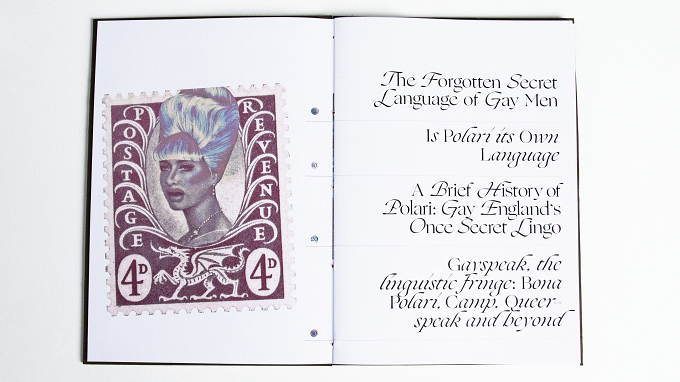 POSTAGE
REVENUE
4D
4D
The Forgotten Secret
Language of Gay Men
Is Polari its Own
Language
A Brief History of
Polari: Gay England's
Once Secret Lingo
Gayspeak, the
linguistic fringe: Bona
Polari, Camp, Queer-
speak and beyond